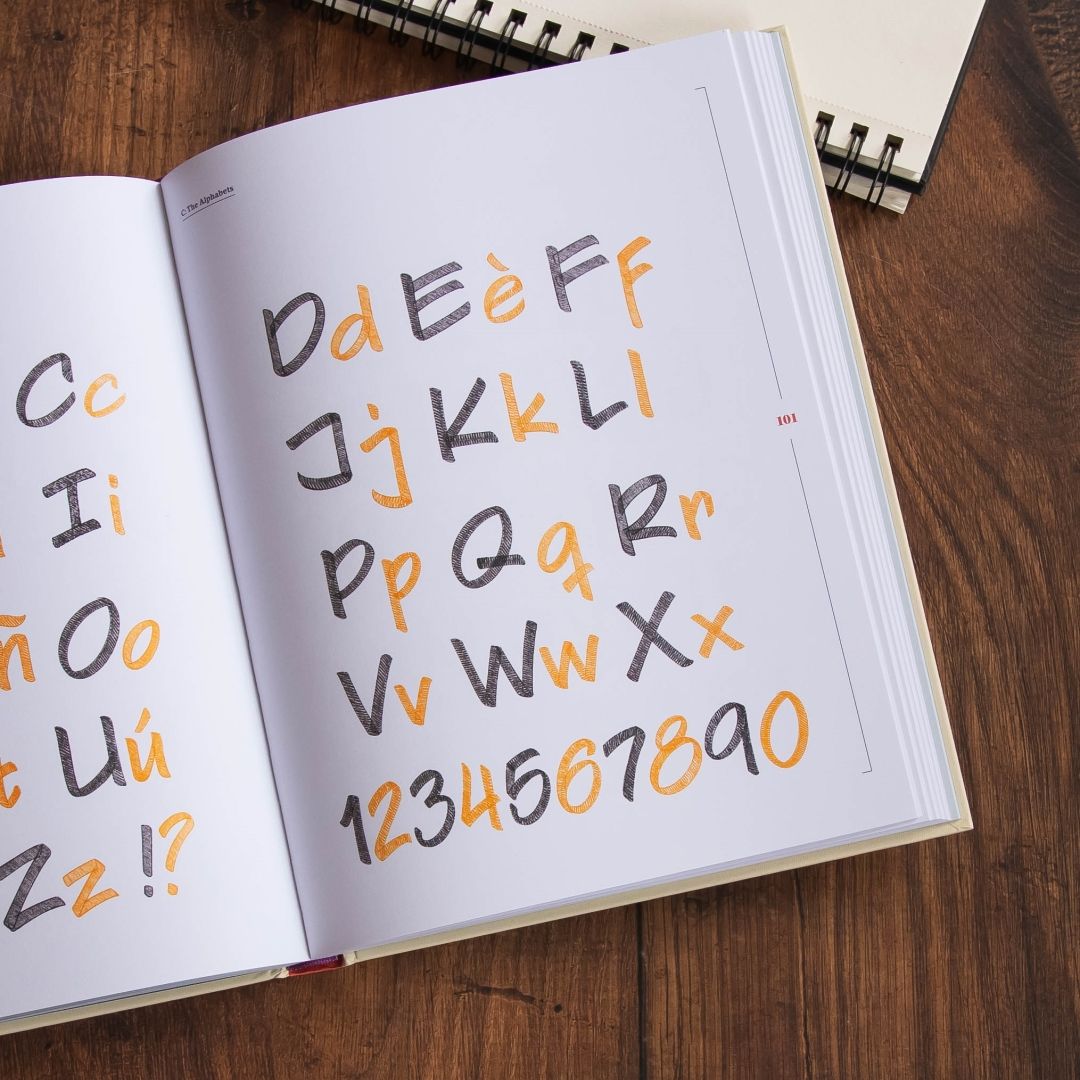 Cc
Ii
ñ Oo
t Uú
Zz !?
C: The Alphabets
Dd Eè Ff
Jj Kk Ll
Pp Qq Rr
Vv Ww Xx
1234567890
101